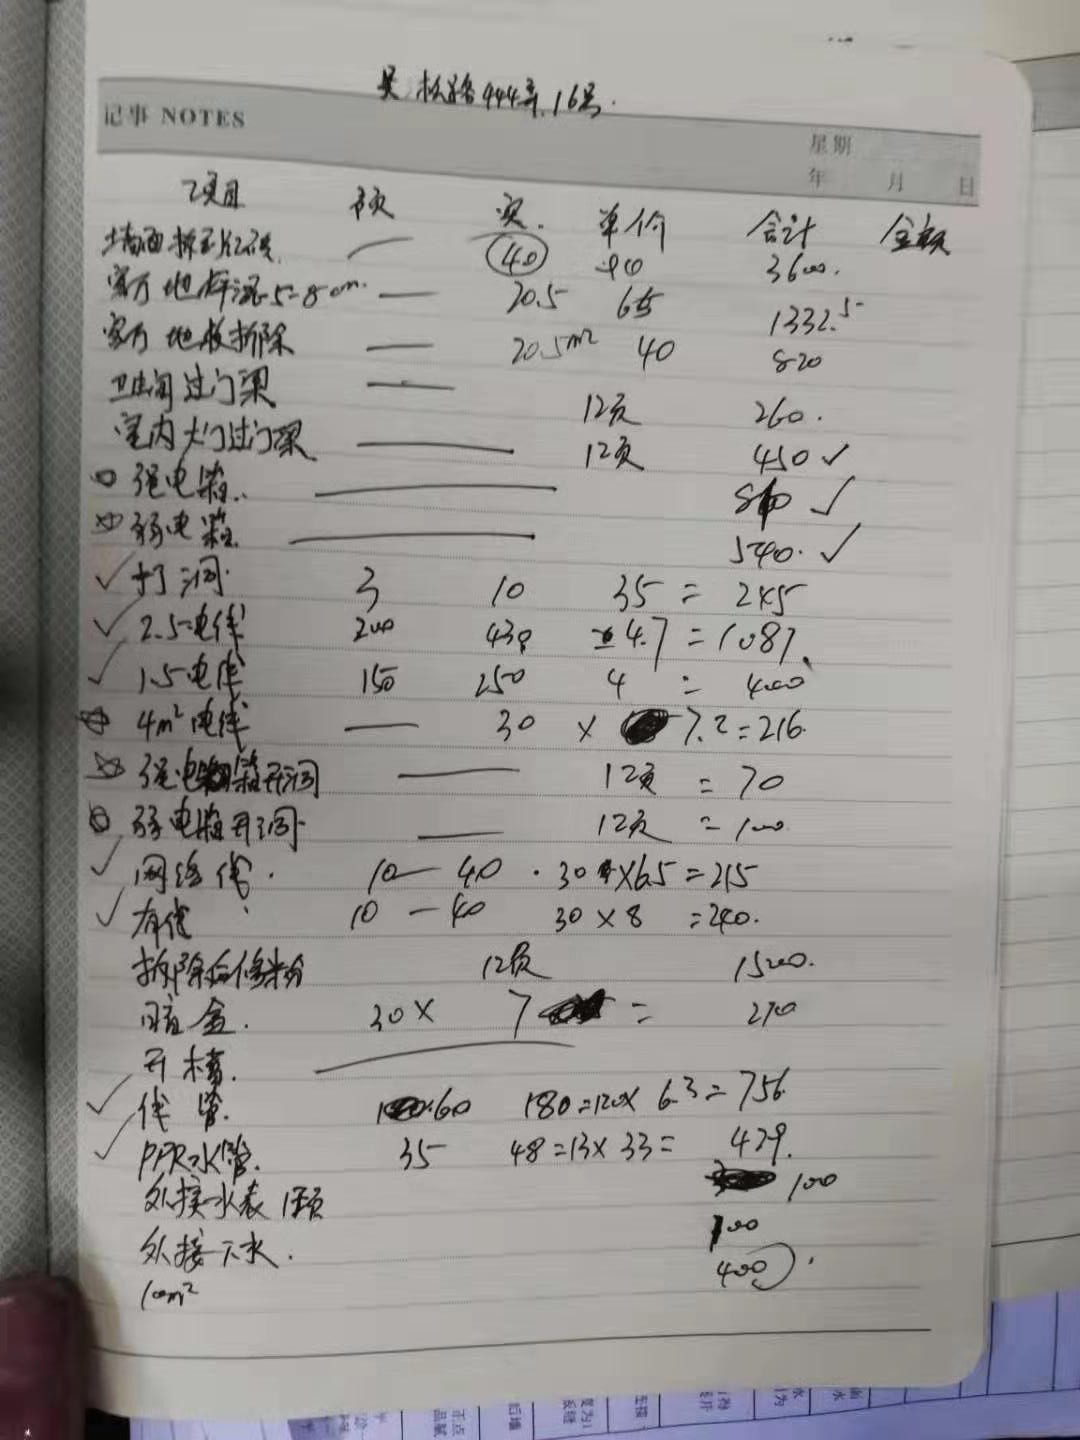 吴松路444弄.16号.
记事 NOTES
星期
年 月 日
项目 预 实. 单价 合计 金额
墙面拆到红砖 — 40 90 3600.
室内地坪混5=8cm. — 20.5 65 1332.5
室内地板拆除 — 20.5m² 40 820
卫生间过门梁 — 1项 260.
室内大门过门梁 — 1项 450 ✓
强电箱. — 810 ✓
弱电箱. — 540. ✓
✓ 打洞. 3 10 35 = 245
✓ 2.5电线 200 430 4.7 = 1081.
✓ 1.5电线 150 250 4 = 400
4m²电线 — 30 × 7.2=216.
强电箱开洞 — 1项 = 70
弱电箱开洞. — 1项 = 100.
✓ 网络线. 10 — 40 . 30 ×6.5=215
✓ 有线 10 — 40 30×8 =240.
拆除后修粉 1项 1500.
暗盒. 30× 7 = 210
开槽. —
✓ 线管. 60 180=120× 6.3=756.
✓ PPR水管. 35 48=13×33= 429.
外接水表1项 100
外接下水. 100
10m² 400.